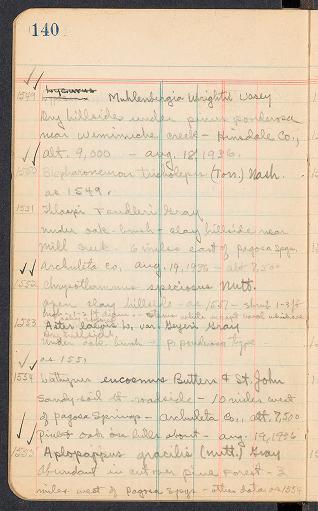 140
1549 Muhlenbergia Wrightii Vasey
Dry hillside under pinus ponderosa
near Weminuche creek - Hinsdale Co.,
alt. 9,000 - aug. 18, 1936.
1550 Blepharoneuron tricholepis (Torr.) Nash.
as 1549.
1551 Thlaspi Fendleri Gray
under oak-brush - clay hillside near
Mill creek - 6 miles east of pagosa Spgs.
Archuleta Co, aug. 19, 1936 - alt 7,500
1552 Chrysothamnus speciosus Nutt.
open clay hillside - as 1551 - shrub 1-3 ft
1553 Aster laevis L. var Geyeri Gray
Dry hillside
under oak brush - p. ponderosa type
as 1551
1554 Lathyrus eucosmus Butters & St. John
Sandy soil of roadside - 10 miles west
of pagosa Springs - Archuleta Co., alt. 7,500
pine & oak on hills about - aug. 19, 1936
1555 Aplopappus gracilis (Nutt.) Gray
abundant in cut over pine forest - 3
miles west of pagosa Spgs - other data as 1554